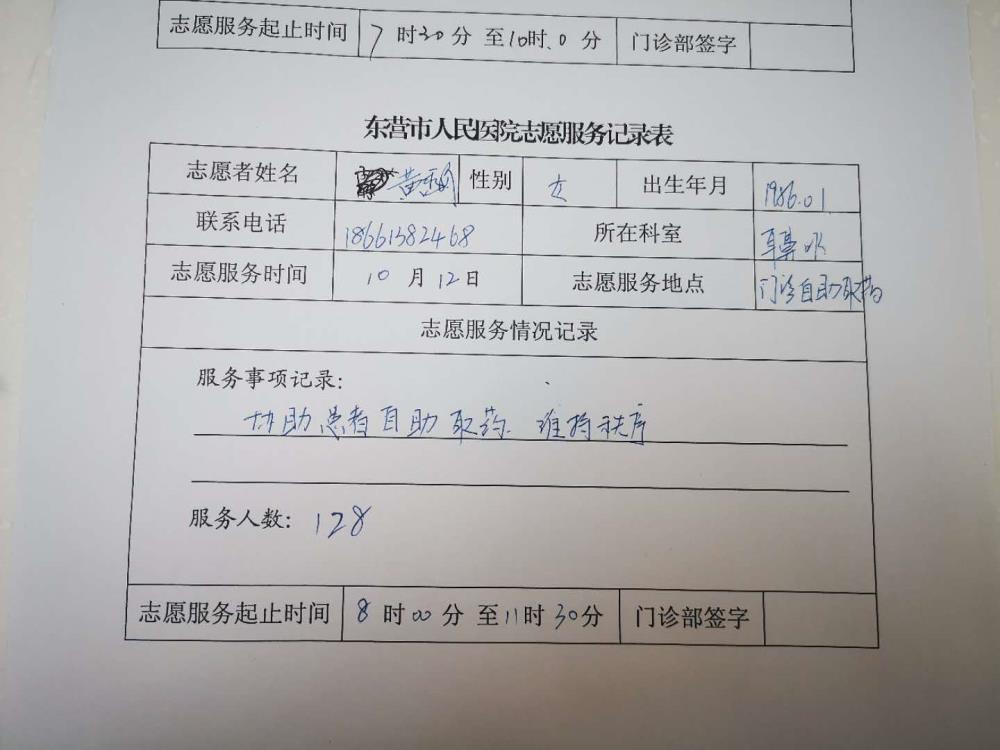 志愿服务起止时间 7 时30 分 至10时.0 分 门诊部签字
东营市人民医院志愿服务记录表
志愿者姓名 黄 性别 女 出生年月 1986.01
联系电话 18661382468 所在科室 耳鼻喉
志愿服务时间 10 月 12日 志愿服务地点 门诊自助取药
志愿服务情况记录
服务事项记录:
协助患者自助取药. 维持秩序
服务人数: 128
志愿服务起止时间 8 时00 分 至11时 30分 门诊部签字